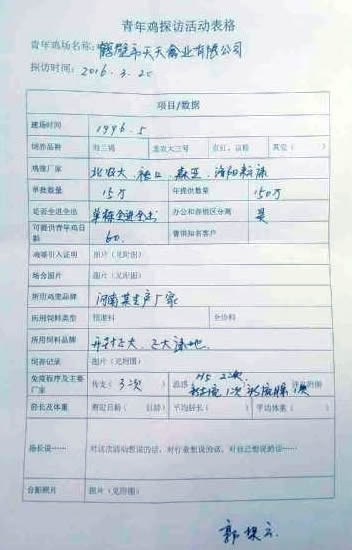 青年鸡探访活动表格
青年鸡场名称: 鹤壁市天天禽业有限公司
探访时间: 2016.3.20
项目/数据
建场时间 1996.5
饲养品种 京农大三号 京红、京粉 其它（ ）
鸡雏厂家 北农大
单批数量 15万 年提供数量 150万
是否全进全出 单栋全进全出 办公和养殖区分离 是
可提供青年鸡日龄 60. 曾供知名客户
鸡雏引入证明 图片（见附图）
场舍图片 图片（见附图）
所用鸡笼品牌 河南某生产厂家
所用饲料类型 预混料 全价料
所用饲料品牌 开封正大、正大
饲养记录 图片（见附图）
免疫程序及主要厂家 传支（3次） 流感 H5 2次 1次 1次
胫长及体重 测定日龄（ 日龄）平均胫长（ ） 平均体重（ ）
场长说…… 对这次活动想说的话，对行业想说的话，对自己想说的话……
合影照片 图片（见附图）